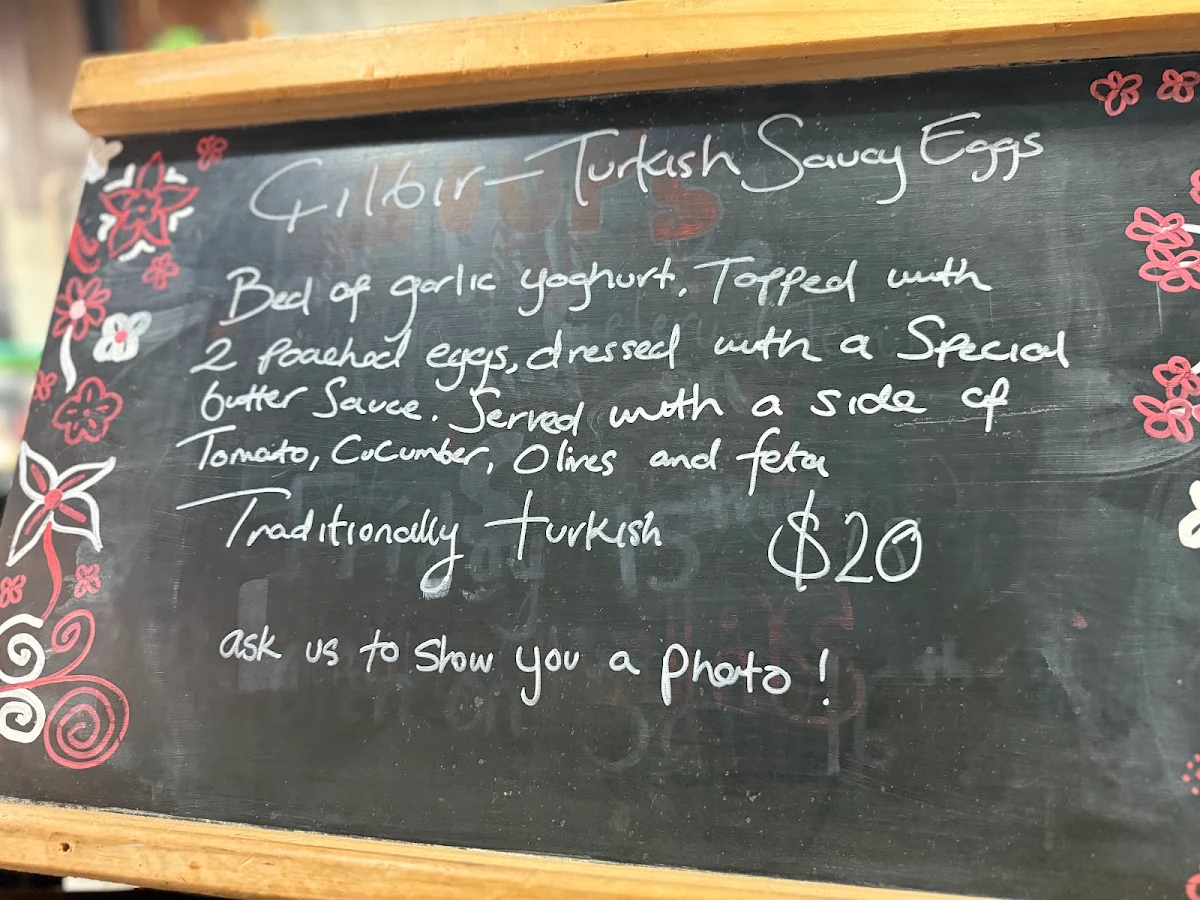 Çılbır - Turkish Saucy Eggs
Bed of garlic yoghurt, Topped with
2 poached eggs, dressed with a Special
butter Sauce. Served with a side of
Tomato, Cucumber, Olives and feta
Traditionally turkish $20
ask us to show you a photo!